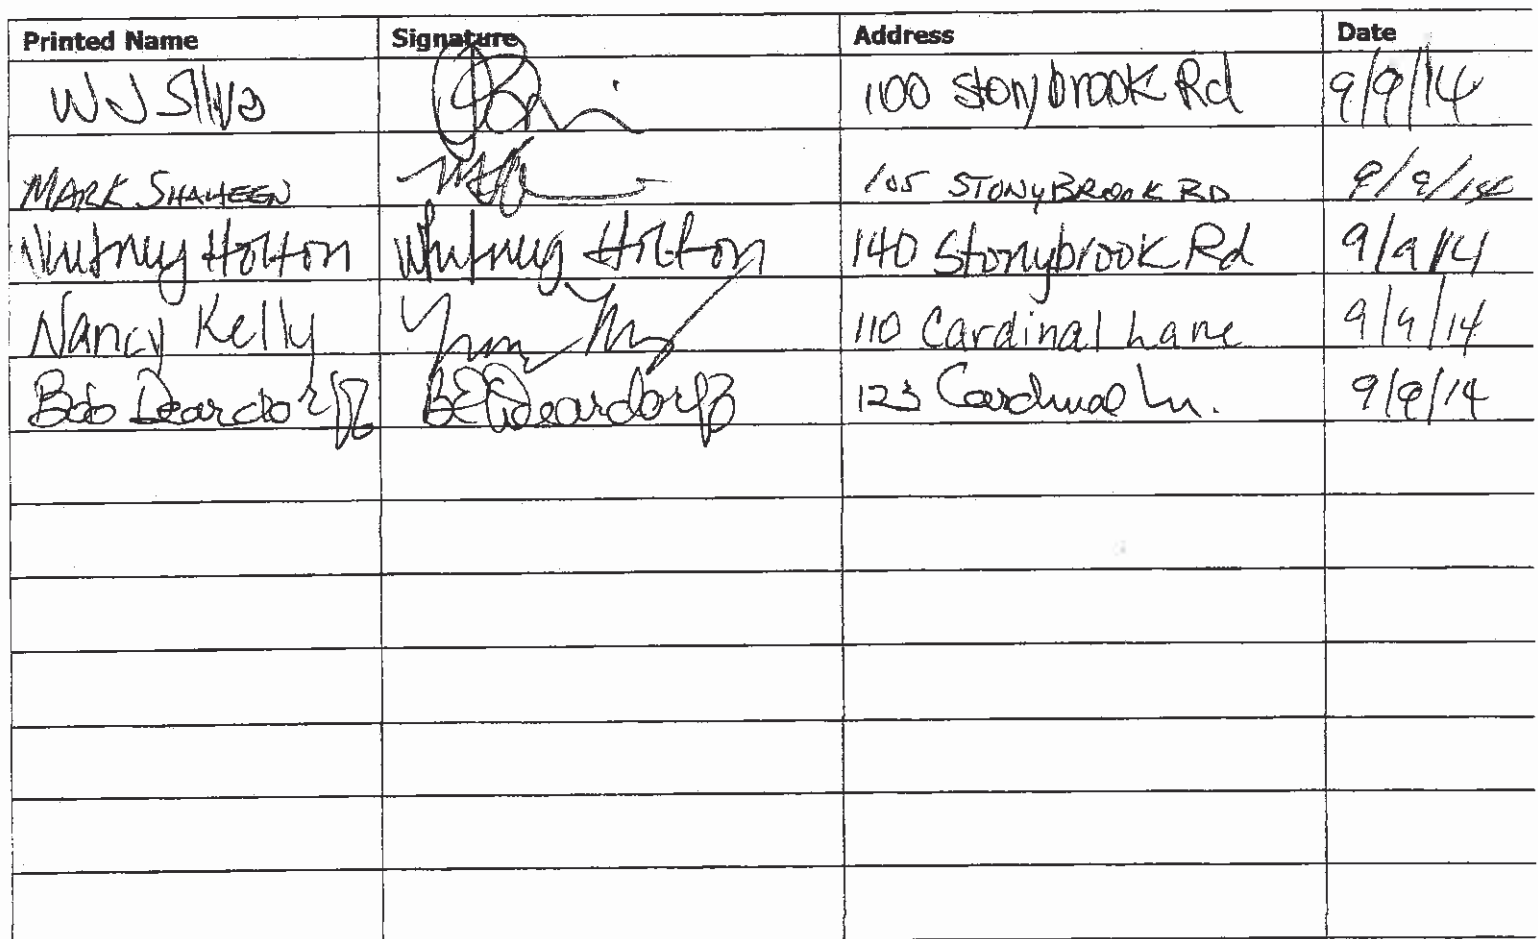 Printed Name Signature Address Date
WJ Silva 100 Stonybrook Rd 9/9/14
MARK SHAHEEN 105 STONYBROOK RD 9/9/14
Whitney Holton Whitney Holton 140 Stonybrook Rd 9/9/14
Nancy Kelly 110 Cardinal Lane 9/9/14
Bob Deardorff BE Deardorff 123 Cardinal Ln. 9/9/14